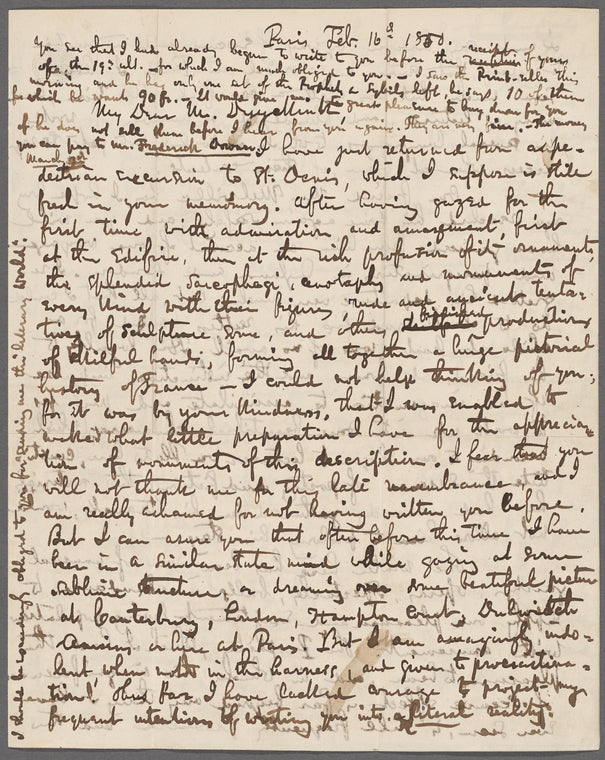 Paris, Feb. 16th 1850.
You see that I had already begun to write to you before the receipt of yours
of the 19th ult. — for which I am much obliged to you. — I saw the Print-seller this
morning and he has only one set of the Prophets & Sybils left, he says, 10 of them
for which he wants 90 fr. — It would give me great pleasure to buy them for you
My Dear Mr. Duyckinck,
of he does not sell them before I hear from you again. They are very fine. — The money
you can pay to Mr. Frederick
March
I have just returned from a pe-
destrian excursion to St. Denis, which I suppose is still
fresh in your memory. After having gazed for the
first time with admiration and amazement, first
at the Edifice, then at the rich profusion of its ornaments,
the splendid sarcophagi, cenotaphs and monuments of
every kind with their figures, rude and ancient tenta-
tives of sculpture some, and others, beautiful productions
of skilful hands, forming all together a huge pictorial
history of France — I could not help thinking of you;
for it was by your kindness, that I was enabled to
make what little preparation I have for the apprecia-
tion of monuments of this description. I fear that you
will not thank me for this late remembrance and I
am really ashamed for not having written you before.
But I can assure you that often before this time I have
been in a similar state mind while gazing at some
sublime structure, or dreaming over some beatiful picture
at Canterbury, London, Hampton Court, Dulwich
Amiens or here at Paris. But I am amazingly indo-
lent, when not in the harness, and given to procrastina-
tion! Thus far I have lacked courage to project my
frequent intentions of writing you into a literal reality.
I should be exceedingly obliged to you for sending me the literary world.